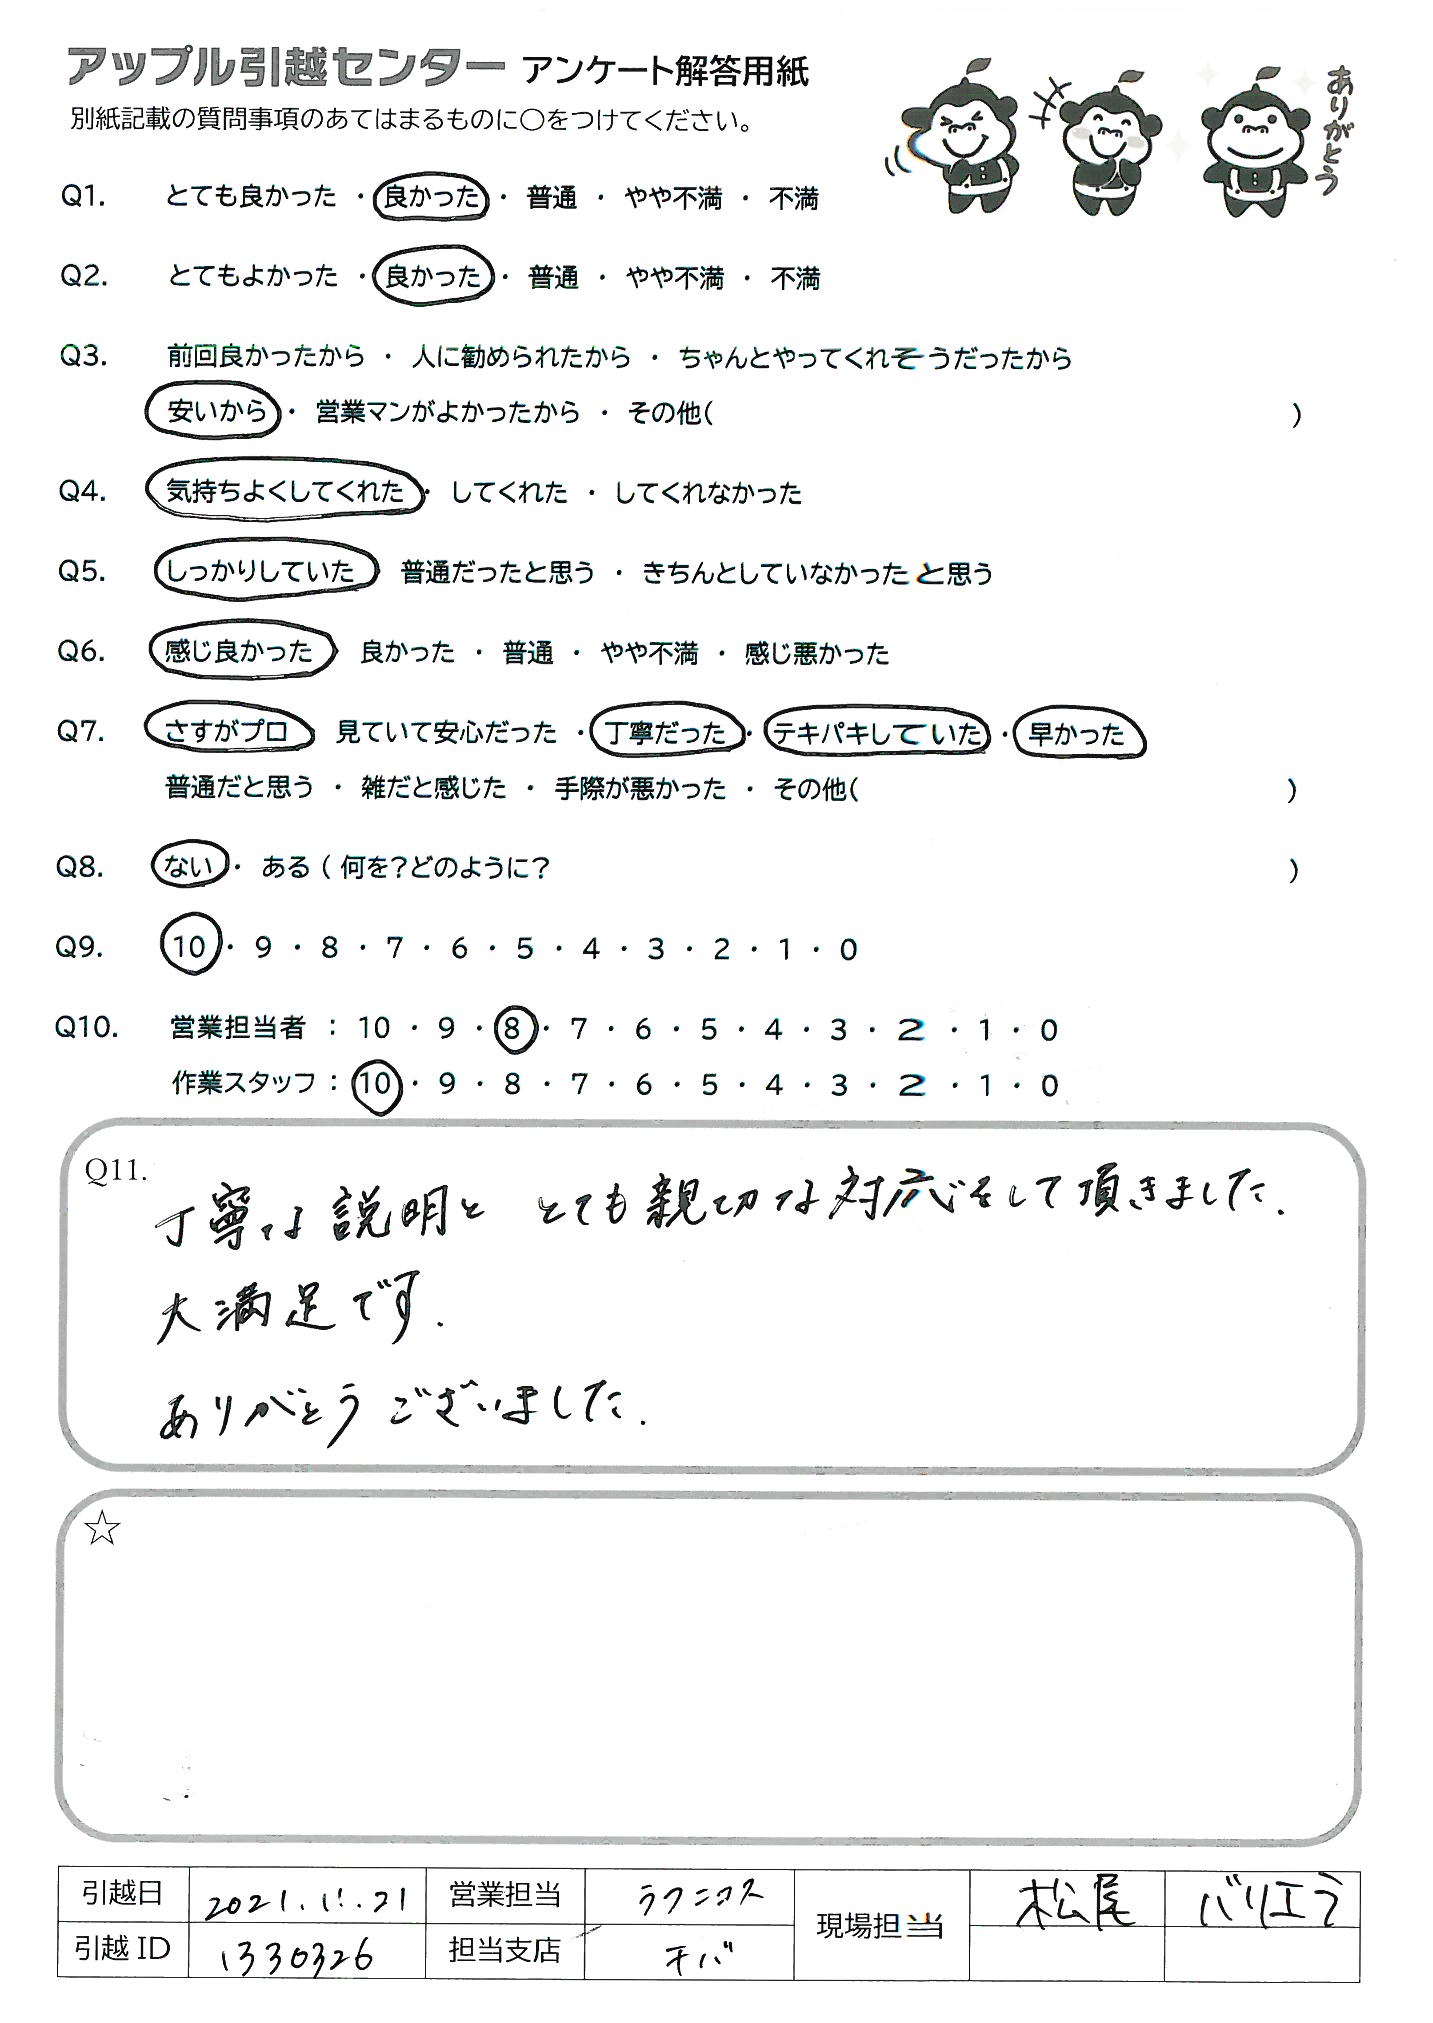 アップル引越センター アンケート解答用紙
別紙記載の質問事項のあてはまるものに○をつけてください。
ありがとう
Q1. とても良かった ・ 良かった ・ 普通 ・ やや不満 ・ 不満
Q2. とてもよかった ・ 良かった ・ 普通 ・ やや不満 ・ 不満
Q3. 前回良かったから ・ 人に勧められたから ・ ちゃんとやってくれそうだったから
安いから ・ 営業マンがよかったから ・ その他( )
Q4. 気持ちよくしてくれた ・ してくれた ・ してくれなかった
Q5. しっかりしていた 普通だったと思う ・ きちんとしていなかったと思う
Q6. 感じ良かった 良かった ・ 普通 ・ やや不満 ・ 感じ悪かった
Q7. さすがプロ 見ていて安心だった ・ 丁寧だった ・ テキパキしていた ・ 早かった
普通だと思う ・ 雑だと感じた ・ 手際が悪かった ・ その他( )
Q8. ない ・ ある ( 何を?どのように? )
Q9. 10 ・ 9 ・ 8 ・ 7 ・ 6 ・ 5 ・ 4 ・ 3 ・ 2 ・ 1 ・ 0
Q10. 営業担当者 : 10 ・ 9 ・ 8 ・ 7 ・ 6 ・ 5 ・ 4 ・ 3 ・ 2 ・ 1 ・ 0
作業スタッフ : 10 ・ 9 ・ 8 ・ 7 ・ 6 ・ 5 ・ 4 ・ 3 ・ 2 ・ 1 ・ 0
Q11.
丁寧な説明と とても親切な対応をして頂きました.
大満足です.
ありがとうございました.
☆
引越日 2021.11.21 営業担当 現場担当 松尾 バリエラ
引越ID 1330326 担当支店 チバ